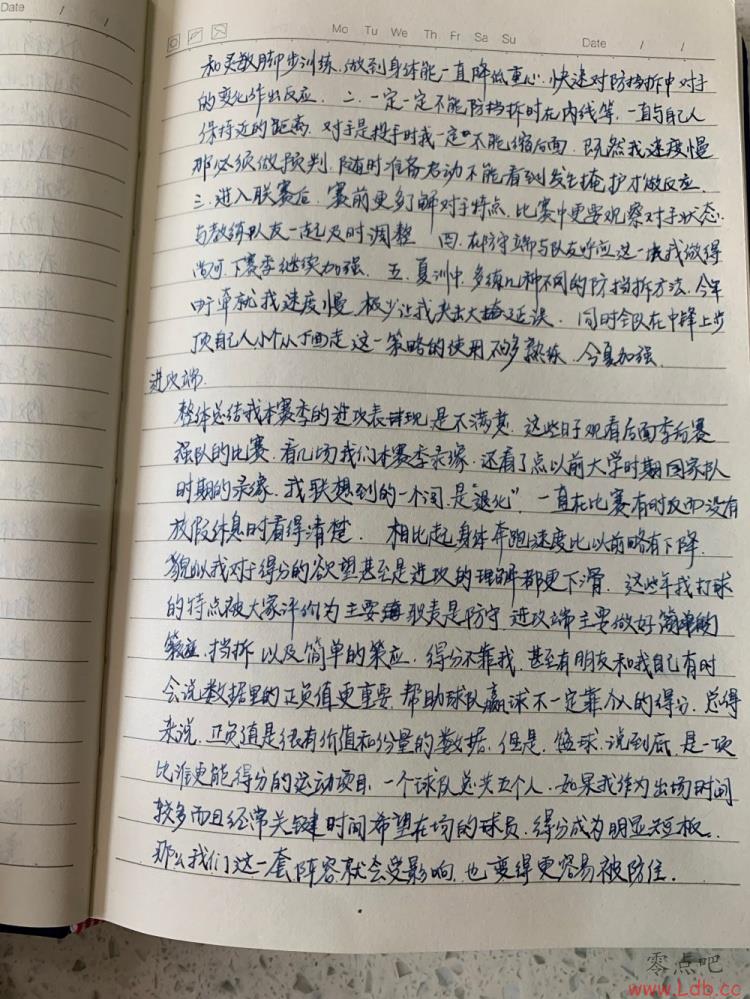 Date / /
Mo Tu We Th Fr Sa Su Date / /
和灵敏脚步训练,做到身体能一直降低重心,快速对防挡拆中对手
的变化作出反应. 二.一定一定不能防挡拆时在内线等,一直与自己人
保持近的距离,对手是投手时我一定不能缩后面,既然我速度慢
那必须做预判,随时准备启动不能看到发生掩护才做反应.
三.进入联赛后,赛前更多了解对手特点,比赛中更要观察对手状态
与教练队友一起及时调整 四.在防守端与队友呼应这一点我做得
尚可,下赛季继续加强. 五.夏训中,多练几种不同的防挡拆方法.今年
由于牵就我速度慢,极少让我夹出大掩延误. 同时全队在中锋上步
顶自己人,小个从下面走这一策略的使用不够熟练,今夏加强.
进攻端.
整体总结我本赛季的进攻表现是不满意.这些日子观看后面季后赛
强队的比赛,看几场我们本赛季录像,还看了点以前大学时期国家队
时期的录像.我联想到的一个词是"退化".一直在比赛有时反而没有
放假休息时看得清楚. 相比起身体奔跑速度比以前略有下降,
貌似我对于得分的欲望甚至是进攻的理解都更下滑.这些年我打球
的特点被大家评价为主要职责是防守,进攻端主要做好简单的
挡拆以及简单的策应.得分不靠我,甚至有朋友和我自己有时
会说数据里的正负值更重要,帮助球队赢球不一定靠个人的得分.总得
来说,正负值是很有价值和份量的数据,但是,篮球,说到底,是一项
比谁更能得分的运动项目,一个球队总共五个人,如果我作为出场时间
较多而且经常关键时间希望在场的球员,得分成为明显短板.
那么我们这一套阵容就会受影响,也变得更容易被防住.
零点吧
www.Ldb.cc